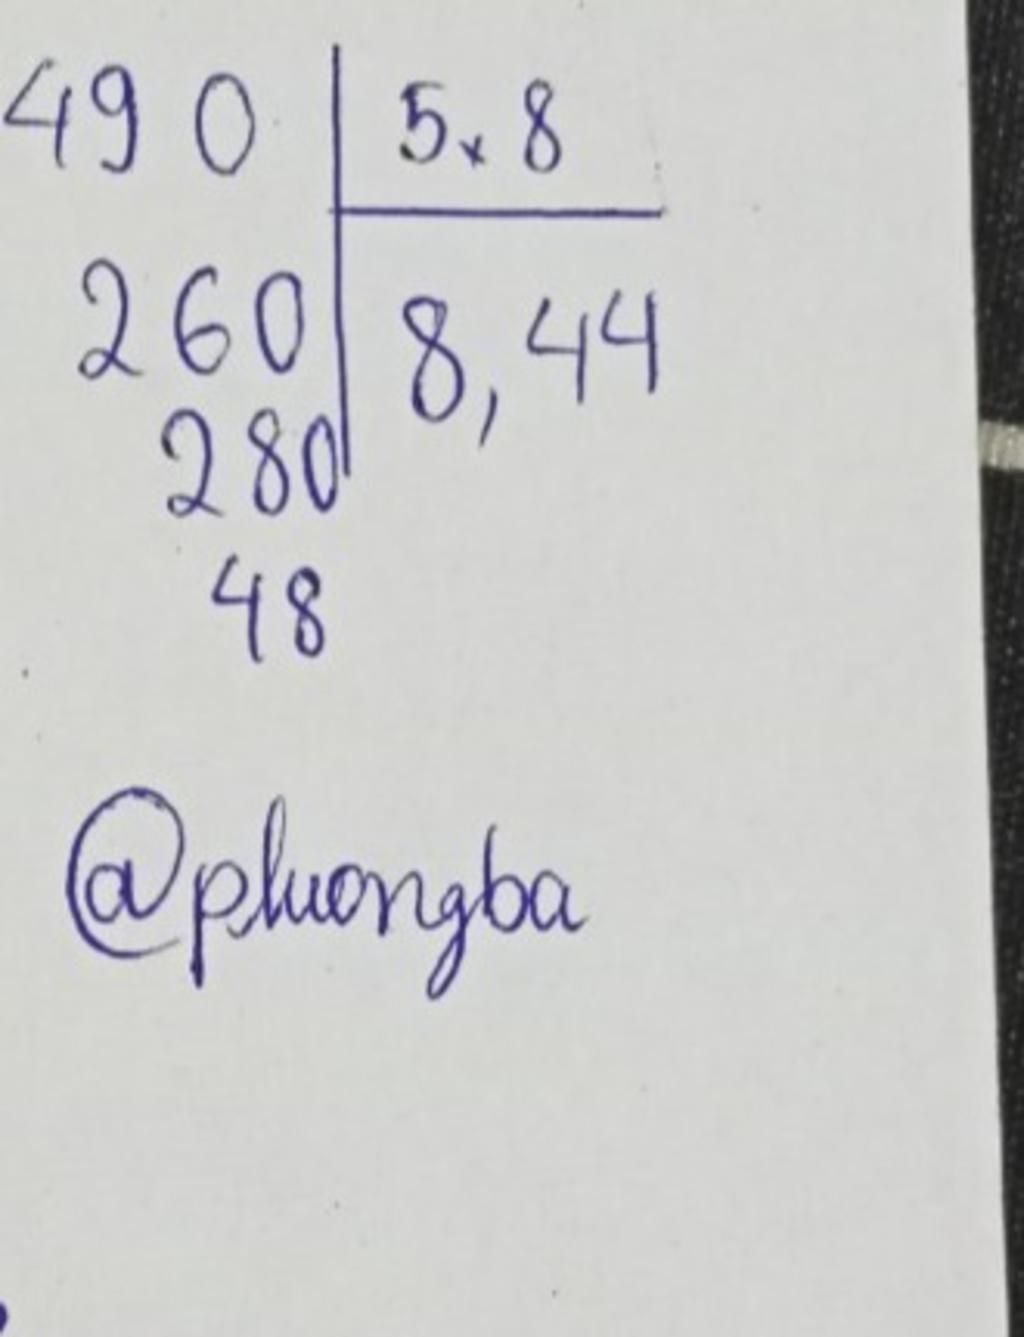 490 5,8
260 8,44
280
48
@phuongba